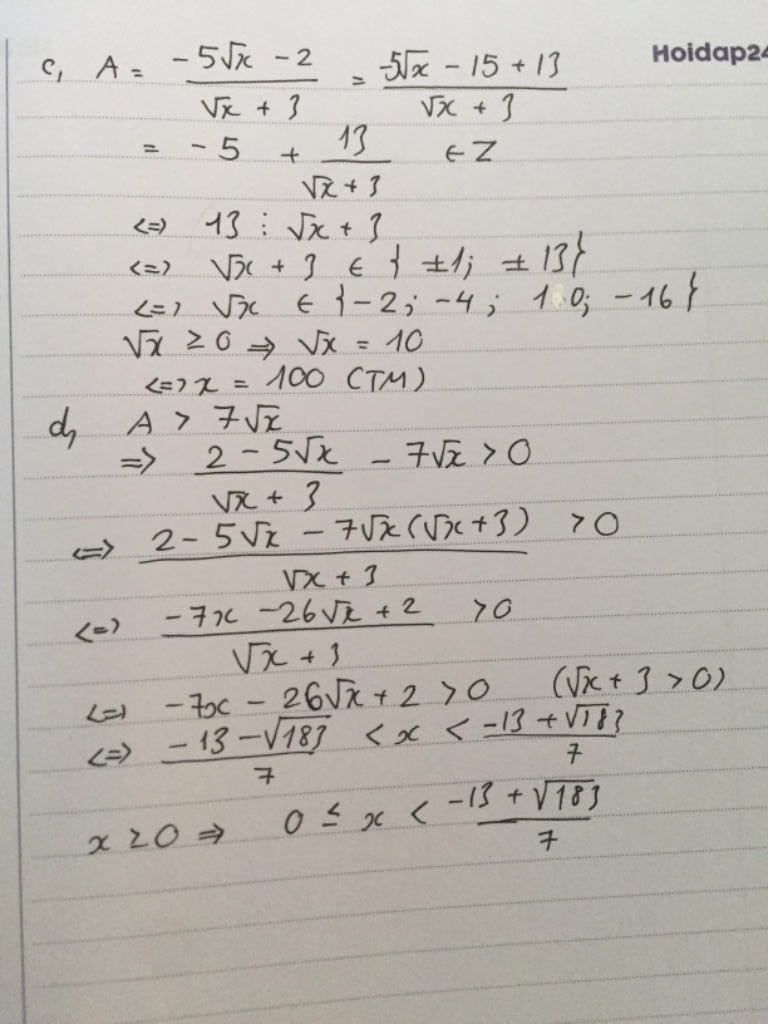 Hoidap24
c, A = (-5√x - 2)/(√x + 3) = (-5√x - 15 + 13)/(√x + 3)
= -5 + 13/(√x + 3) ∈ Z
<=> 13 ⋮ √x + 3
<=> √x + 3 ∈ { ±1; ± 13}
<=> √x ∈ {-2; -4; 10; -16}
√x ≥ 0 => √x = 10
<=> x = 100 (TM)
d, A > 7√x
=> (2 - 5√x)/(√x + 3) - 7√x > 0
<=> (2 - 5√x - 7√x(√x + 3))/(√x + 3) > 0
<=> (-7x - 26√x + 2)/(√x + 3) > 0
<=> -7x - 26√x + 2 > 0 (√x + 3 > 0)
<=> (-13 - √183)/7 < x < (-13 + √183)/7
x ≥ 0 => 0 ≤ x < (-13 + √183)/7